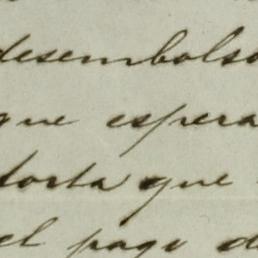 desembolso
que espera
torta que
el pago d